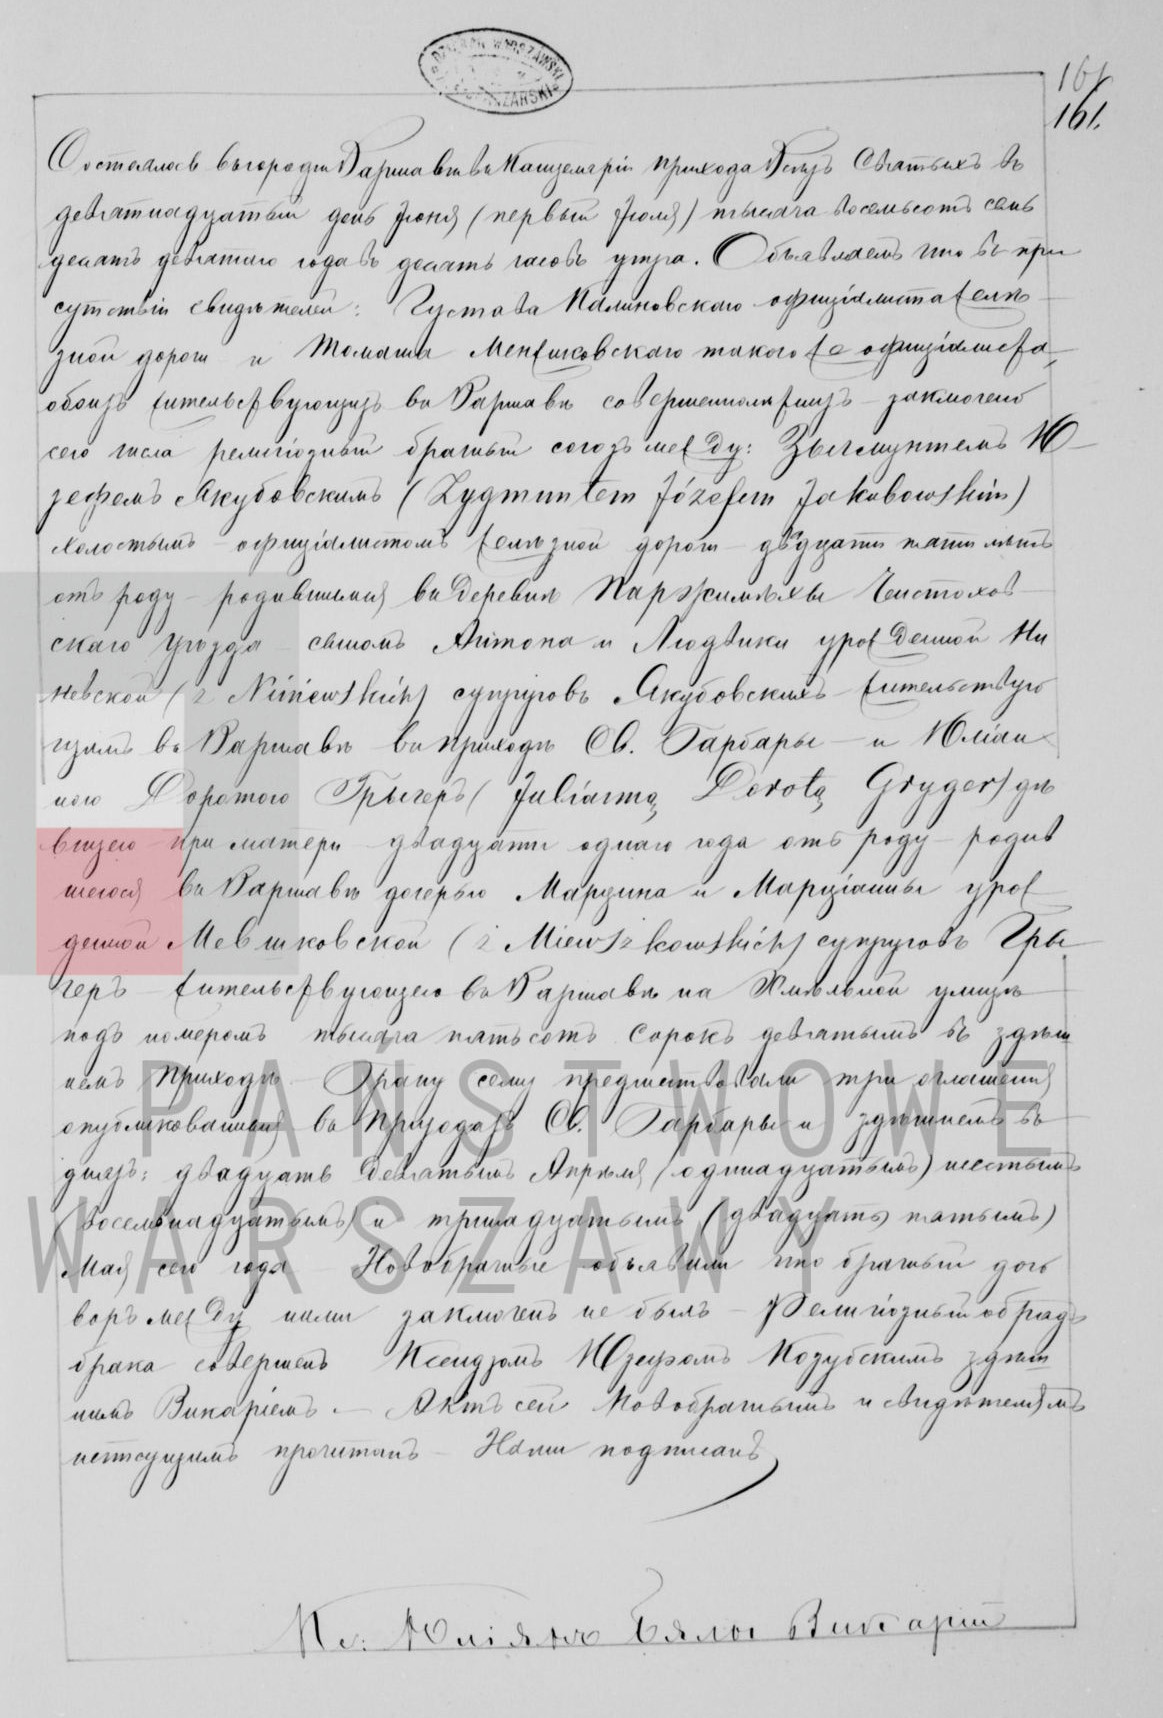 DZIEKAN WARSZAWSKI
161
161.
Состоялось въ городѣ Варшавѣ въ Канцеляріи прихода Всѣхъ Святыхъ въ
девятнадцатый день Іюня (первый Іюля) тысяча восемьсотъ семь
десятъ девятаго года въ десять часовъ утра. Объявляемъ что въ при
сутствіи свидѣтелей: Густава Калиновскаго официалиста желѣ
зной дороги и Томаша Менжиковскаго такого же официалиста,
обоихъ жительствующихъ въ Варшавѣ совершеннолѣтнихъ заключенъ
сего числа религіозный брачный союзъ между: Зыгмунтемъ Ю-
зефемъ Якубовскимъ (Zygmuntem Józefem Jakubowskim)
холостымъ официалистомъ желѣзной дороги двадцати пяти лѣтъ
отъ роду родившимся въ деревнѣ Паржимѣхы Ченстохов
скаго уѣзда сыномъ Антона и Людвики урожденной Ни
невской (z Niniewskich) супруговъ Якубовскихъ жительствую
щимъ въ Варшавѣ въ приходѣ Св. Барбары и Юліан
ною Доротою Грыгеръ (Julianną Dorotą Gryger) дѣ
вицею при матери двадцати одного года отъ роду родив
шеюся въ Варшавѣ дочерью Марцина и Марціанны урож
денной Мевшковской (z Miewszkowskich) супруговъ Гры
геръ жительствующею въ Варшавѣ на Хмѣльной улицѣ
подъ номеромъ тысяча пятьсотъ сорокъ девятымъ въ здѣш
немъ приходѣ. Браку сему предшествовали три оглашенія
опубликованныя въ приходахъ Св. Барбары и здѣшнемъ въ
дняхъ: двадцать девятымъ Апрѣля (одинадцатымъ) шестымъ
(восемнадцатымъ) и тринадцатымъ (двадцать пятымъ)
Мая сего года Новобрачные объявили что брачный дого
воръ между ними заключенъ не былъ Религіозный обрядъ
брака совершенъ Ксендзомъ Юзефомъ Козубскимъ здѣш
нимъ Викаріемъ. Актъ сей Новобрачнымъ и свидѣтелямъ
неписущимъ прочитанъ Нами подписанъ
Кс: Юліянъ Бялы Викарій
PAŃSTWOWE
WARSZAWY